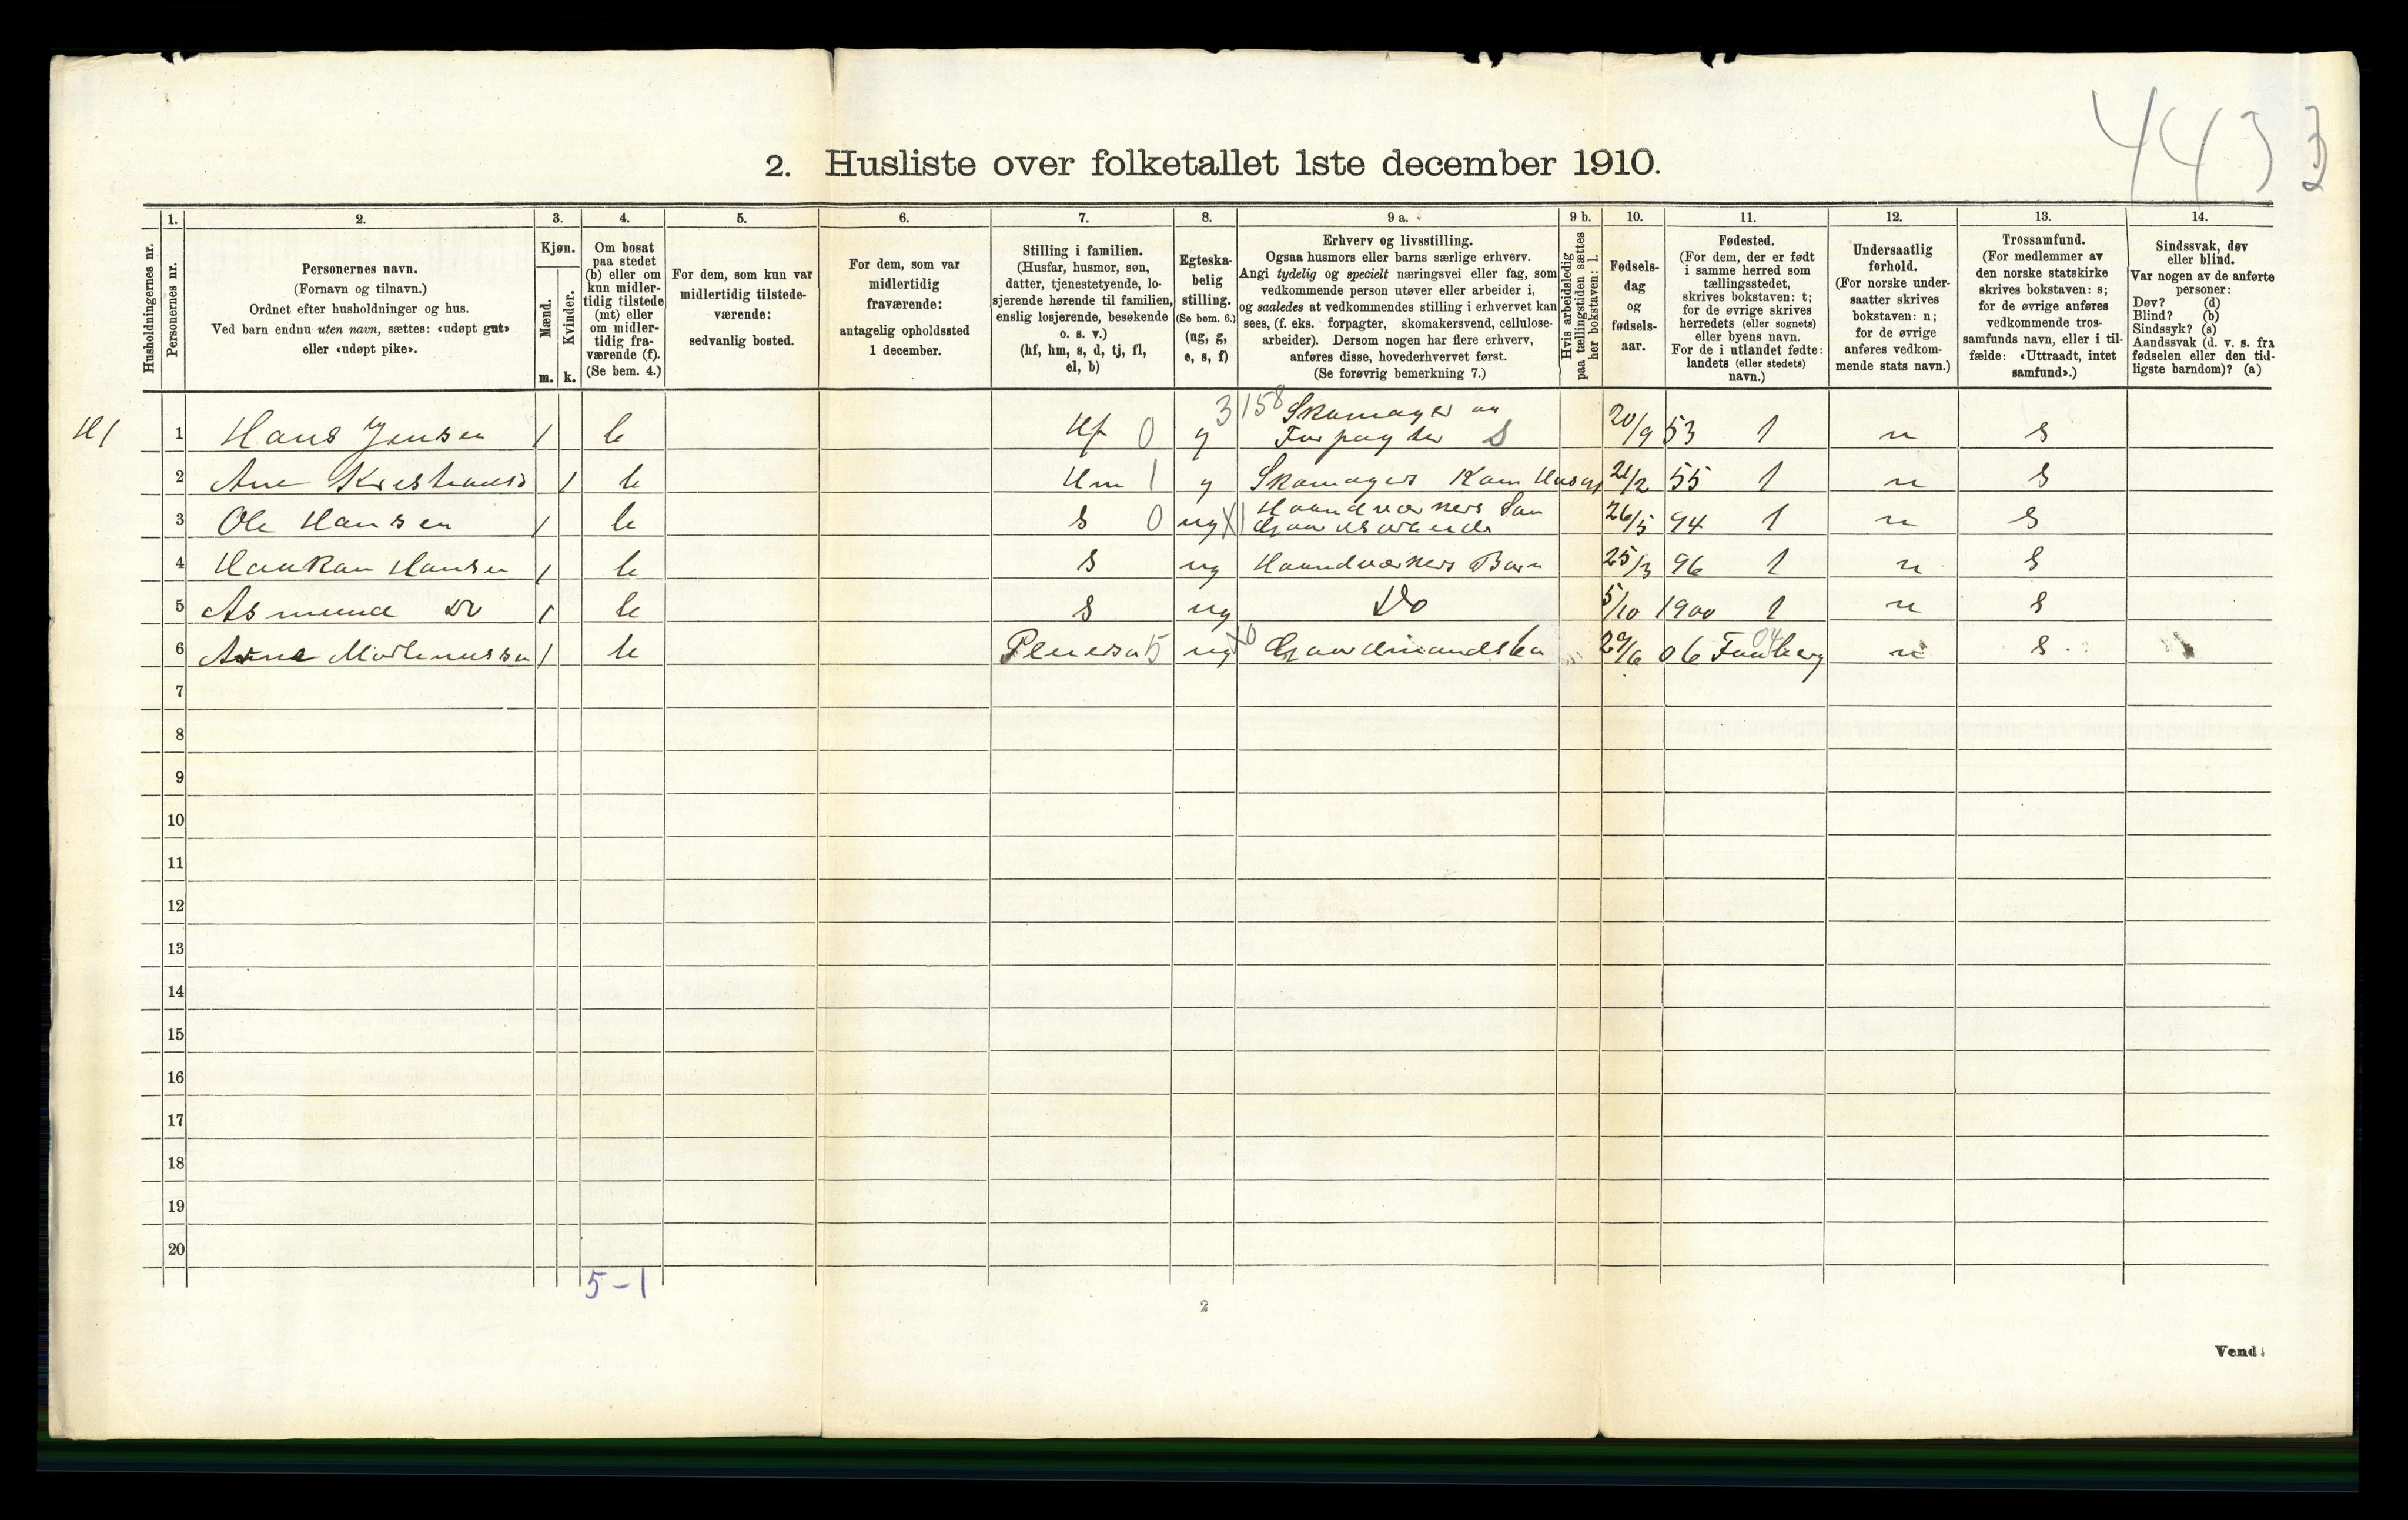 4433
2. Husliste over folketallet 1ste december 1910.
1. 2. 3. 4. 5. 6. 7. 8. 9 a. 9 b. 10. 11. 12. 13. 14.
Husholdningernes nr.
Personernes nr.
Personernes navn.
(Fornavn og tilnavn.)
Ordnet efter husholdninger og hus.
Ved barn endnu uten navn, sættes: «udøpt gut»
eller «udøpt pike».
Kjøn.
Mænd.
Kvinder.
m. k.
Om bosat
paa stedet
(b) eller om
kun midler-
tidig tilstede
(mt) eller
om midler-
tidig fra-
værende (f).
(Se bem. 4.)
For dem, som kun var
midlertidig tilstede-
værende:
sedvanlig bosted.
For dem, som var
midlertidig
fraværende:
antagelig opholdssted
1 december.
Stilling i familien.
(Husfar, husmor, søn,
datter, tjenestetyende, lo-
sjerende hørende til familien,
enslig losjerende, besøkende
o. s. v.)
(hf, hm, s, d, tj, fl,
el, b)
Egteska-
belig
stilling.
(Se bem. 6.)
(ug, g,
e, s, f)
Erhverv og livsstilling.
Ogsaa husmors eller barns særlige erhverv.
Angi tydelig og specielt næringsvei eller fag, som
vedkommende person utøver eller arbeider i,
og saaledes at vedkommendes stilling i erhvervet kan
sees, (f. eks. forpagter, skomakersvend, cellulose-
arbeider). Dersom nogen har flere erhverv,
anføres disse, hovederhvervet først.
(Se forøvrig bemerkning 7.)
Hvis arbeidsledig
paa tællingstiden sættes
her bokstaven: l.
Fødsels-
dag
og
fødsels-
aar.
Fødested.
(For dem, der er født
i samme herred som
tællingsstedet,
skrives bokstaven: t;
for de øvrige skrives
herredets (eller sognets)
eller byens navn.
For de i utlandet fødte:
landets (eller stedets)
navn.)
Undersaatlig
forhold.
(For norske under-
saatter skrives
bokstaven: n;
for de øvrige
anføres vedkom-
mende stats navn.)
Trossamfund.
(For medlemmer av
den norske statskirke
skrives bokstaven: s;
for de øvrige anføres
vedkommende tros-
samfunds navn, eller i til-
fælde: «Uttraadt, intet
samfund».)
Sindssvak, døv
eller blind.
Var nogen av de anførte
personer:
Døv? (d)
Blind? (b)
Sindssyk? (s)
Aandssvak (d. v. s. fra
fødselen eller den tid-
ligste barndom)? (a)
3 158 Skomager og
H1 1 Hans Jensen 1 b Hf 0 g Forpagter S 20/9 53 t n s
2 Ane Kristiansd 1 b Hm 1 g Skomagers Kone 21/2 55 t n s
Haandværkers Søn
3 Ole Hansen 1 b s 0 ug X1 Gaardsarbeide 26/5 94 t n s
4 Haakon Hansen 1 b s ug Haandværkers Barn 25/3 96 t n s
5 Asmund Do 1 b s ug Do 5/10 1900 t n s
6 Arne Mortenussen 1 b Plejesøn 5 ug X0 29/6 06 Faaberg 04 n s
7
8
9
10
11
12
13
14
15
16
17
18
19
20
5-1
2
Vend!